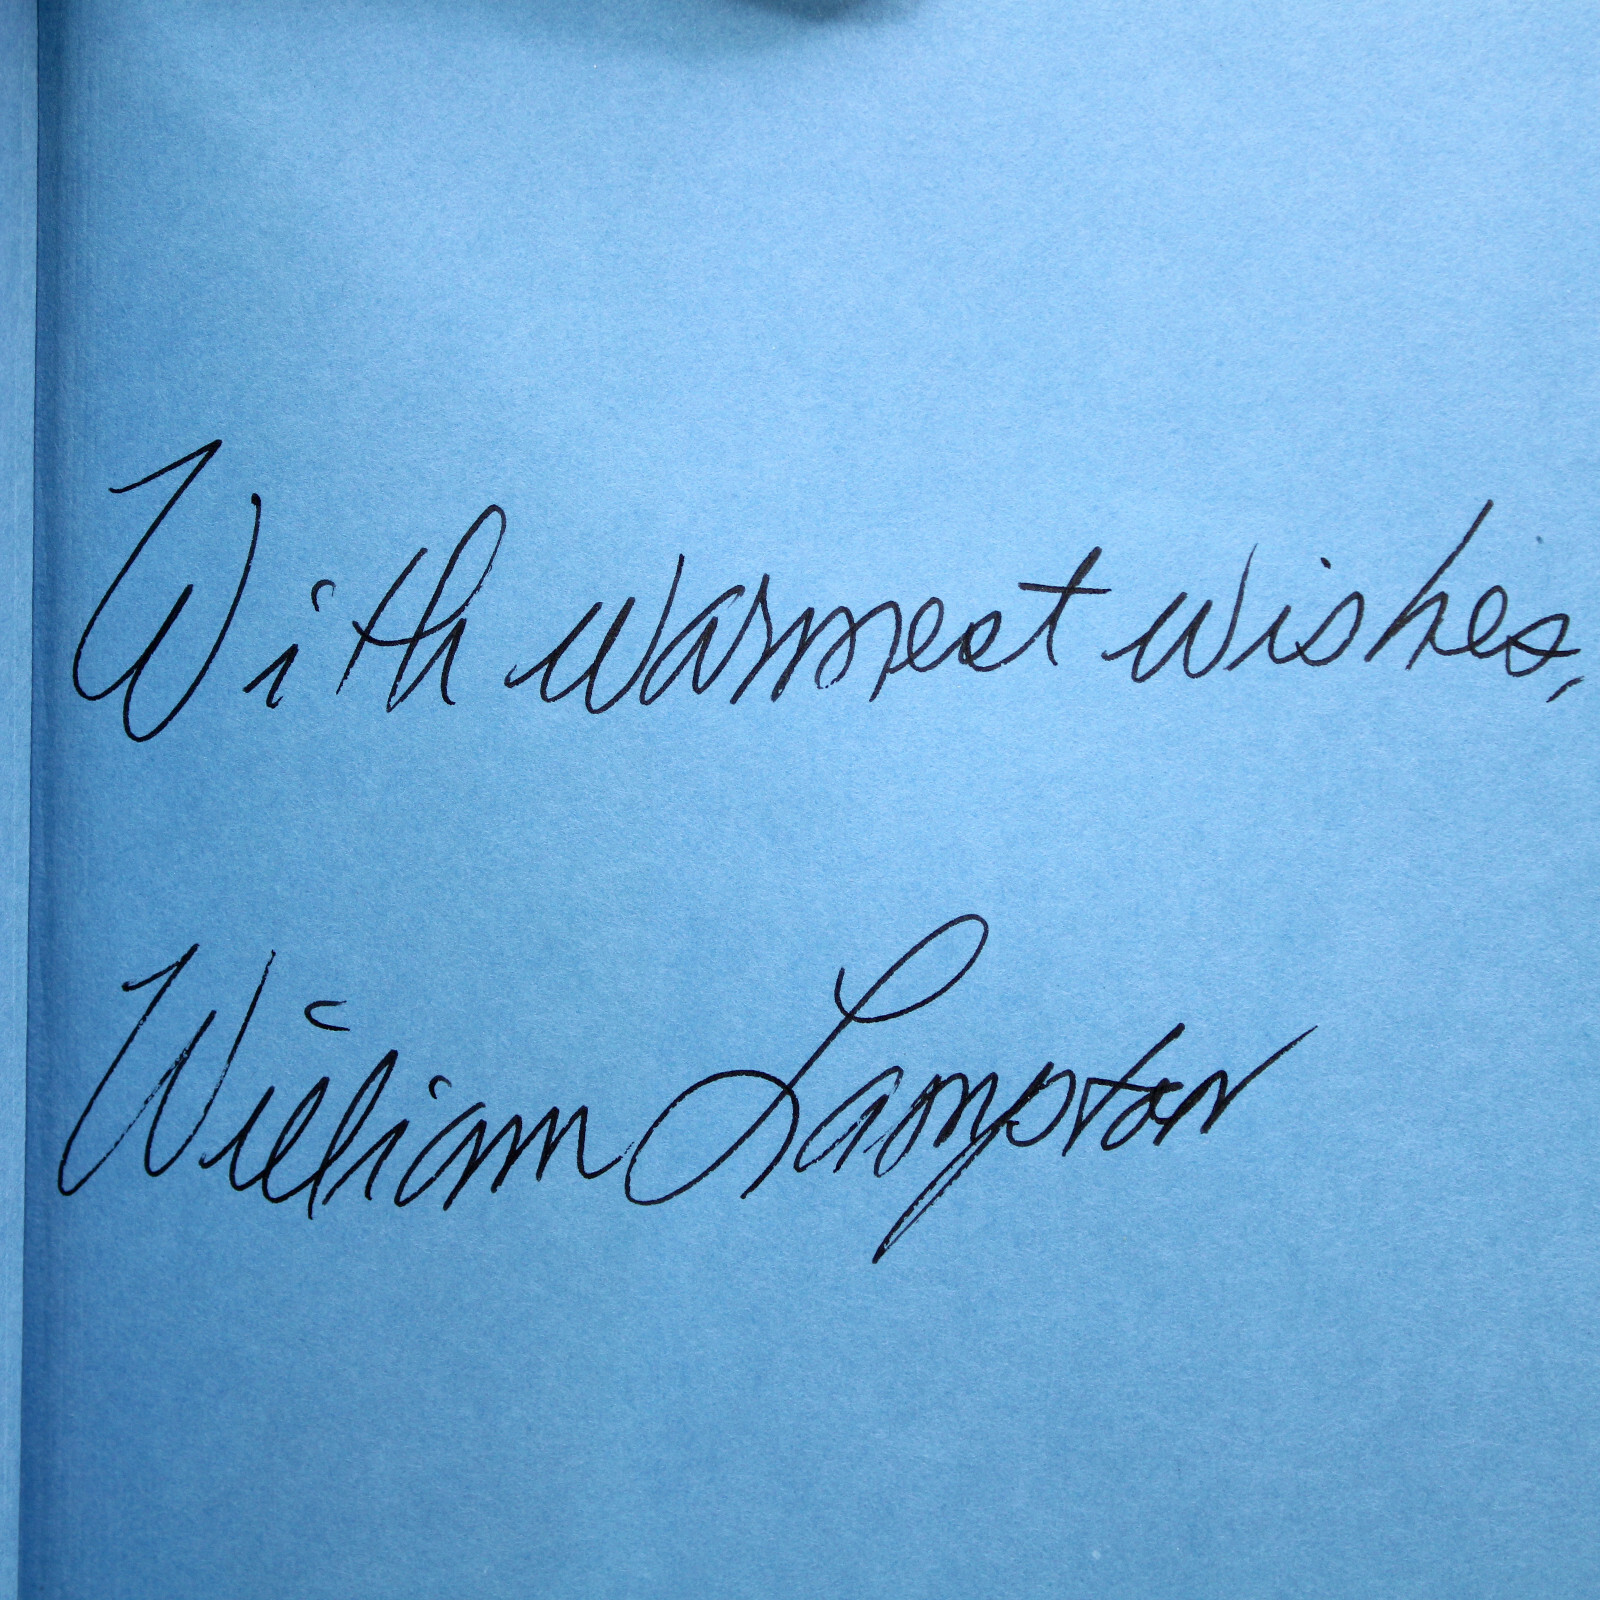 With warmest wishes,
William Lampton